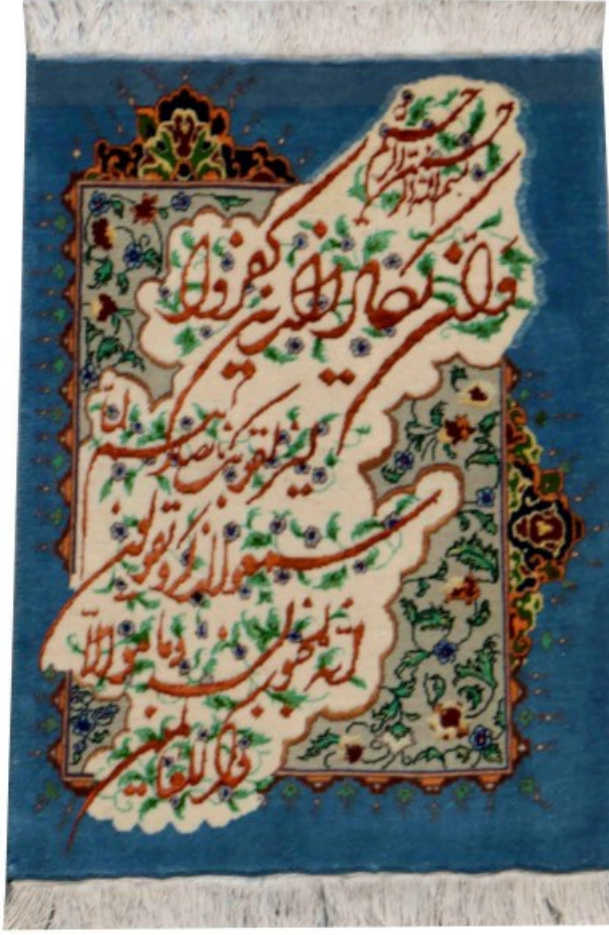 بسم الله الرحمن الرحیم
وان یکاد الذین کفروا
لیزلقونک بابصارهم لما
سمعوا الذکر و یقولون
انه لمجنون و ما هو الا
ذکر للعالمین